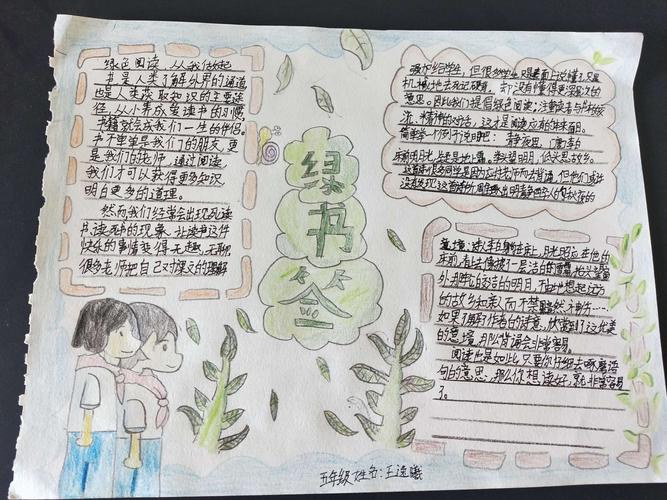 绿色阅读，从我做起
书是人类了解外界的通道
也是人类获取知识的主要途
径，从小养成爱读书的习惯
书籍就会成我们一生的伴侣。
书不单单是我们的朋友，更
是我们的老师，通过阅读
我们才可以获得更多知识
明白更多的道理。
然而我们经常会出现死读
书、读死书的现象，让读书这件
快乐的事情变得无趣、无聊
很多老师把自己对课文的理解
绿
书
签
强加给学生，但很多学生只是表面上说懂了，只是
机械地去死记硬背，却没有懂得更深层次的
意思。因此我们提倡绿色阅读：注重读者与
流、精神的对话，这才是阅读应有的本来面目。
简单举一个例子说明吧：静夜思 唐·李白
床前明月光，疑是地上霜。举头望明月，低头思故乡。
这首诗很多同学是因为应付老师而去背诵，但他们或许
没有发现这首诗的
李白躺在床上，月光照应在他的
床前，看上去像披上一层洁白的
外那皎洁的明月，不由地想起远方
的故乡和亲人而不禁黯然神伤……
如果了解到作者的诗意，欣赏到了这优美
的意境，那么背诵会非常容易。
阅读也是如此，只要你仔细去琢磨语
句的意思，那么你想读好，就非常容易
了。
五年级 姓名：王逸曦